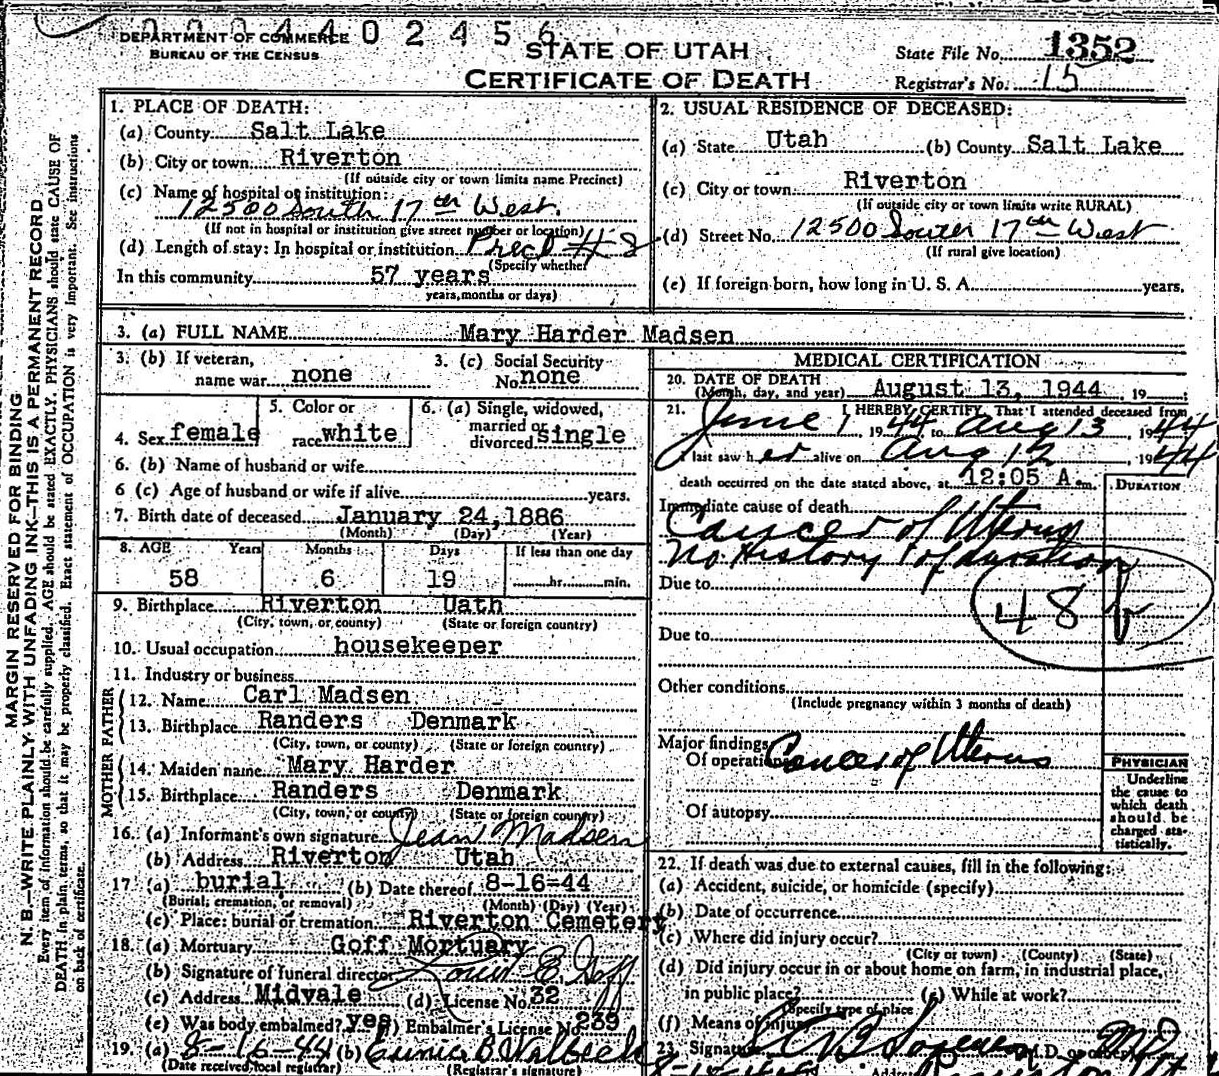 0004402456
DEPARTMENT OF COMMERCE
BUREAU OF THE CENSUS
STATE OF UTAH
CERTIFICATE OF DEATH
State File No. 1352
Registrar's No. 15
MARGIN RESERVED FOR BINDING
N. B.—WRITE PLAINLY WITH UNFADING INK—THIS IS A PERMANENT RECORD
Every item of information should be carefully supplied. AGE should be stated EXACTLY. PHYSICIANS should state CAUSE OF
DEATH in plain terms, so that it may be properly classified. Exact statement of OCCUPATION is very important. See instructions
on back of certificate.
1. PLACE OF DEATH:
(a) County Salt Lake
(b) City or town Riverton
(If outside city or town limits name Precinct)
(c) Name of hospital or institution:
12500 South 17th West.
(If not in hospital or institution give street number or location)
(d) Length of stay: In hospital or institution Precl #8
(Specify whether
In this community 57 years
years, months or days)
2. USUAL RESIDENCE OF DECEASED:
(a) State Utah (b) County Salt Lake
(c) City or town Riverton
(If outside city or town limits write RURAL)
(d) Street No. 12500 South 17th West
(If rural give location)
(e) If foreign born, how long in U. S. A. years.
3. (a) FULL NAME Mary Harder Madsen
3. (b) If veteran, name war none
3. (c) Social Security No. none
4. Sex female
5. Color or race white
6. (a) Single, widowed, married or divorced single
6. (b) Name of husband or wife
6 (c) Age of husband or wife if alive years.
7. Birth date of deceased January 24, 1886
(Month) (Day) (Year)
8. AGE Years Months Days If less than one day
58 6 19 hr. min.
9. Birthplace Riverton Uath
(City, town, or county) (State or foreign country)
10. Usual occupation housekeeper
11. Industry or business
FATHER
12. Name Carl Madsen
13. Birthplace Randers Denmark
(City, town, or county) (State or foreign country)
MOTHER
14. Maiden name Mary Harder
15. Birthplace Randers Denmark
(City, town, or county) (State or foreign country)
16. (a) Informant's own signature Jean Madsen
(b) Address Riverton Utah
17 (a) burial (b) Date thereof 8-16-44
(Burial, cremation, or removal) (Month) (Day) (Year)
(c) Place: burial or cremation Riverton Cemetery
18. (a) Mortuary Goff Mortuary
(b) Signature of funeral director Louis E. Goff
(c) Address Midvale (d) License No. 32
(e) Was body embalmed? yes Embalmer's License No. 239
19. (a) 8-16-44 (b) Eunice B.
(Date received local registrar) (Registrar's signature)
MEDICAL CERTIFICATION
20. DATE OF DEATH
(Month, day, and year) August 13, 1944, 19
21. I HEREBY CERTIFY, That I attended deceased from
June 1, 1944 to Aug 13, 1944
I last saw her alive on Aug 12, 1944
death occurred on the date stated above, at 12:05 A.m.
DURATION
Immediate cause of death
Cancer of Uterus
No History of duration
Due to
48 b
Due to
Other conditions
(Include pregnancy within 3 months of death)
Major findings
Of operation Cancer of Uterus
Of autopsy
PHYSICIAN
Underline
the cause to
which death
should be
charged sta-
tistically.
22. If death was due to external causes, fill in the following:
(a) Accident, suicide, or homicide (specify)
(b) Date of occurrence
(c) Where did injury occur?
(City or town) (County) (State)
(d) Did injury occur in or about home on farm, in industrial place,
in public place? (e) While at work?
(Specify type of place
(f) Means of injury
23. Signature M.D. or other MD